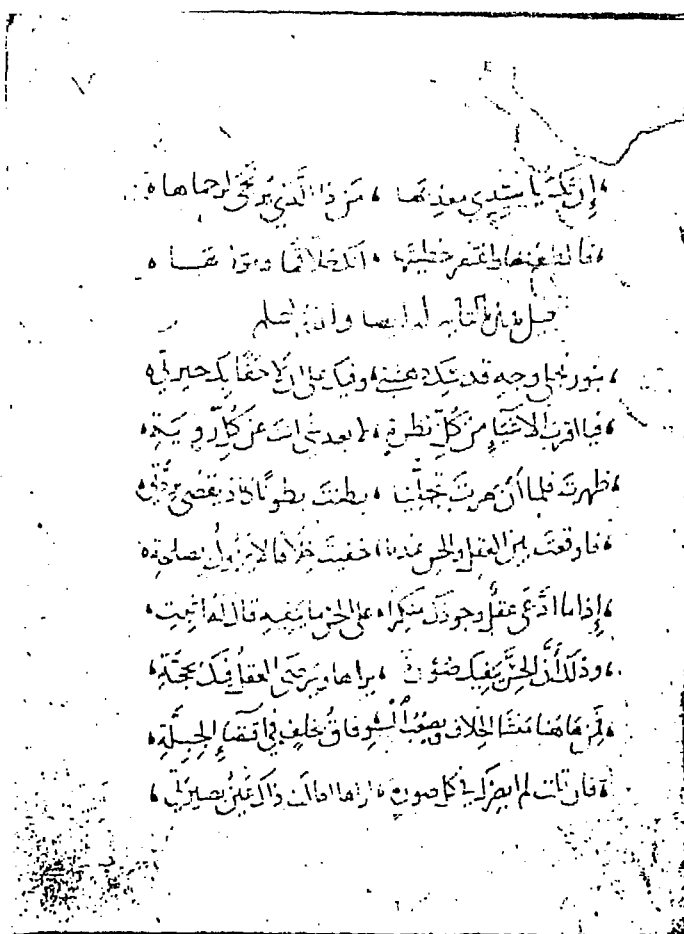 إن تكن يا سيدي معذبها ، من ذا الذي يرتجى لرحماها
فالطف بها واغتفر خطيتها ، انك خلاقها و
قيل
بنور تجلي وجه قدسك دهشتي ، وفيك على ان لا خفا بك حيرتي
فيا اقرب الاشيا من كل نظرة ، لا بعد شي انت عن كل رؤية
ظهرت فلما أن بهرت تجليا ، بطنت بطونا كاد يقضي بردتي
فاوقعت بين العقل والحس عندنا ، خفيت خلافا لا يزول بصلحة
إذا ما ادعى عقل وجودك منكرا ، على الحس ما ينفيه قال له اثبت
وذلك أن الحس ينفيك صورة ، يراها ويرضى العقل فيك بحجة
فمن هاهنا منشا الخلاف ويصعب الشوفاق بخلف في اقتضاء الجبلة
فان قلت لم ابصرك في كل صورة ، اراها احالت ذاك عين بصيرتي